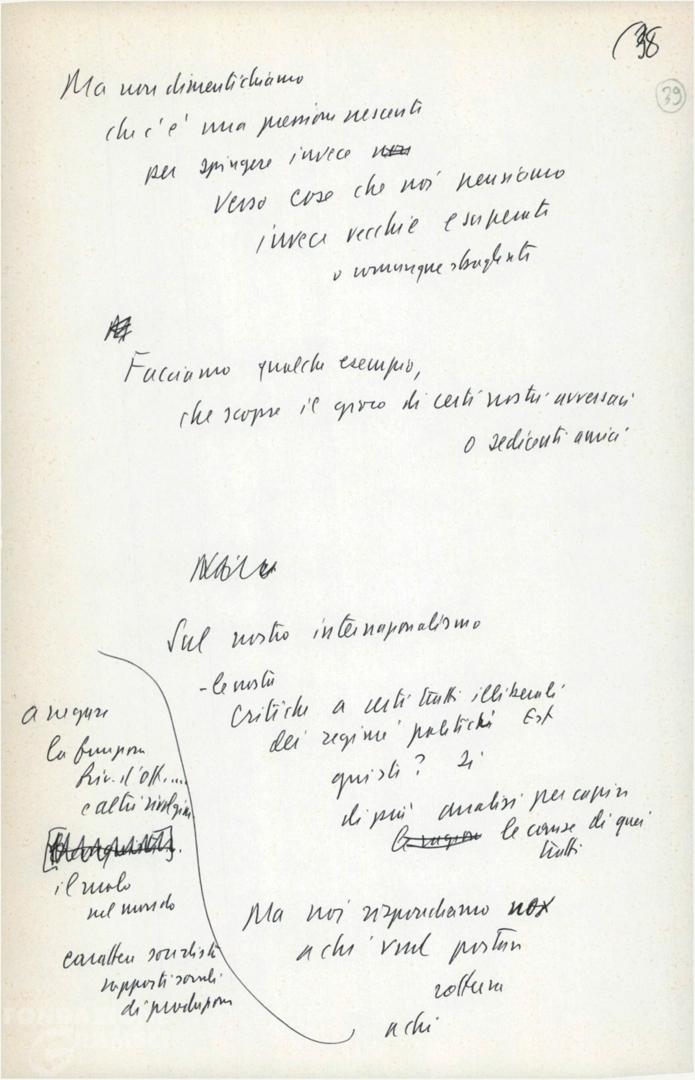 (38
39
Ma non dimentichiamo
che c'è una pressione crescente
per spingere invece non
verso cose che noi pensiamo
invece vecchie e superate
o comunque sbagliate
Facciamo qualche esempio,
che scopre il gioco di certi nostri avversari
o sedicenti amici
Sul nostro internazionalismo
- le nostre
critiche a certi tratti illiberali
dei regimi politici Est
giusti? Sì
di più analisi per capire
le ragioni le cause di quei
tratti
Ma noi rispondiamo no
a chi vuol portare
rottura
a chi
a negare
la funzione
Riv. d'Ott....
e altri rivolgim
il ruolo
nel mondo
carattere socialista
rapporti sociali
di produzione